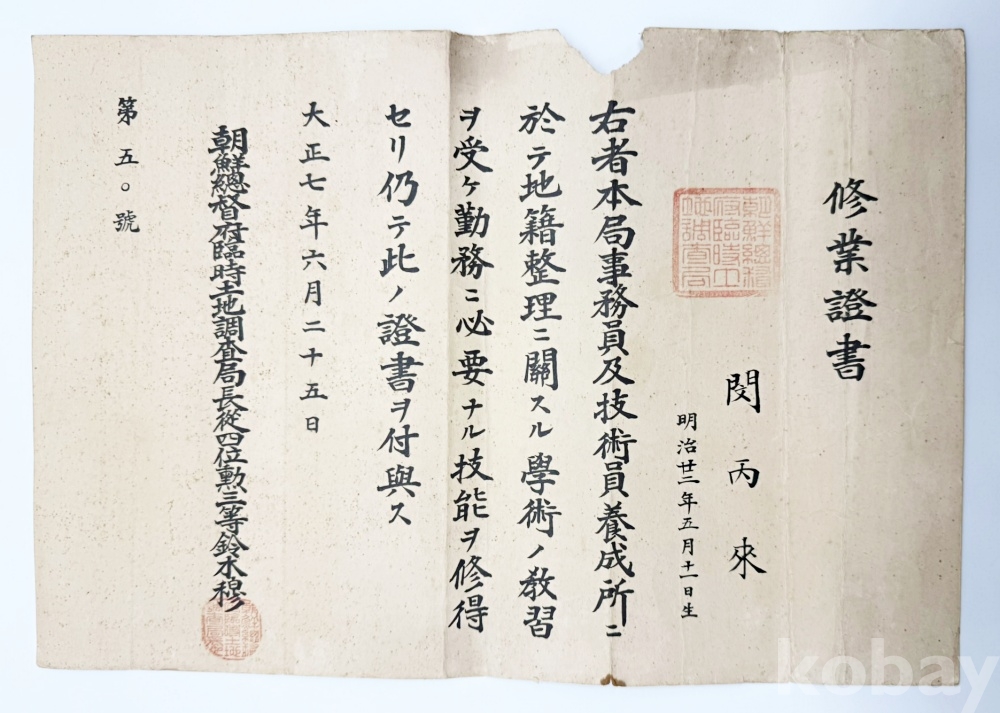 修業證書
閔丙來
明治廿二年五月十一日生
右者本局事務員及技術員養成所ニ
於テ地籍整理ニ關スル學術ノ教習
ヲ受ケ勤務ニ必要ナル技能ヲ修得
セリ仍テ此ノ證書ヲ付與ス
大正七年六月二十五日
朝鮮總督府臨時土地調査局長從四位勲三等鈴木穆
第五〇號
朝鮮總督府臨時土地調査局
kobay